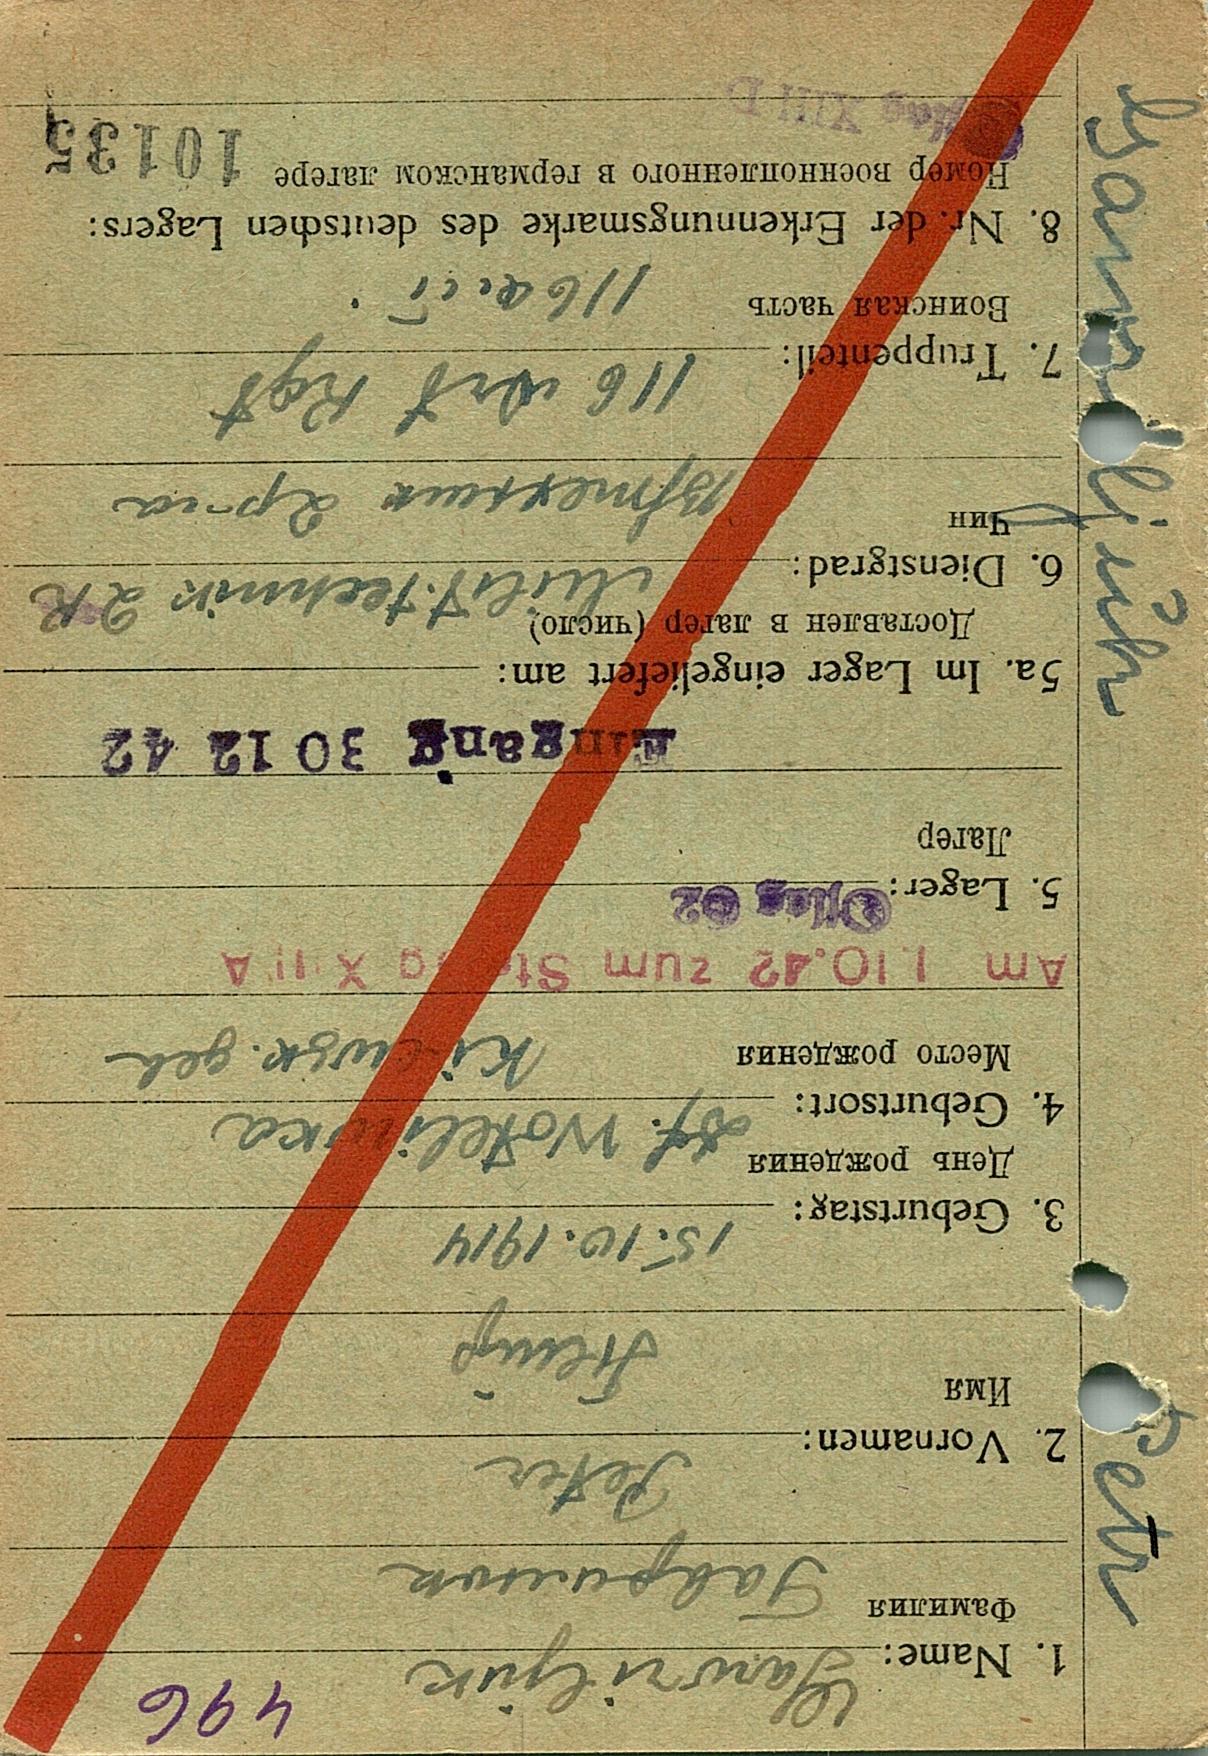 496
1. Name: Gawriljuk
Фамилия Гаврилюк
2. Vornamen: Peter
Имя
3. Geburtstag: 15.10.1914
День рождения
4. Geburtsort: Df.
Место рождения Kiewsk. geb
Am 1.10.42 zum Stalag XIII A
5. Lager: Oflag 62
Лагер
Eingang 30 12 42
5a. Im Lager eingeliefert am:
Доставлен в лагер (число)
6. Dienstgrad: Milit. technik 2 R
Чин В/техник 2 р-га
7. Truppenteil: 116 Art Rgt
Воинская часть 116 а.п.
8. Nr. der Erkennungsmarke des deutschen Lagers:
Номер военнопленного в германском лагере 10135
Oflag XIII D
Petr